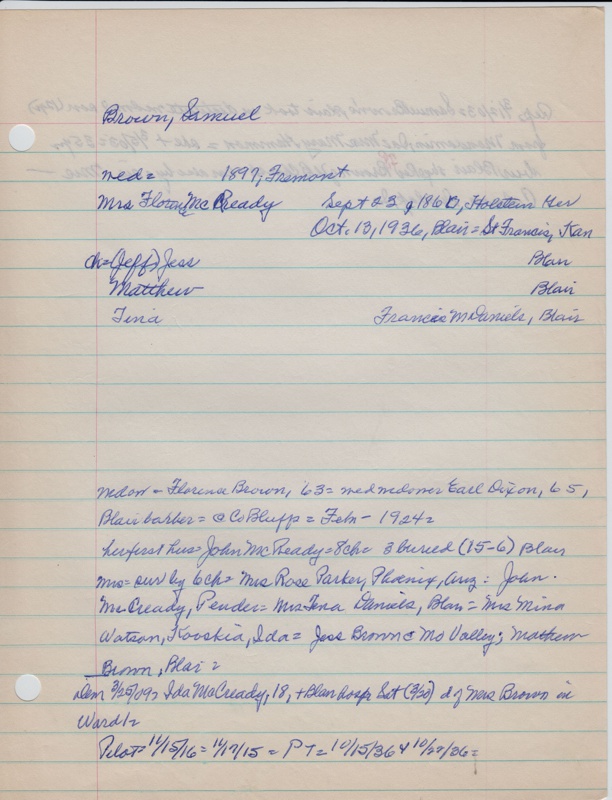 Brown, Samuel
med = 1897, Fremont
Mrs Florence McCready Sept 23, 1860, Holstein Ger
Oct. 13, 1936, Blair = St Francis, Kan
ch = (Jeff) Jess Blair
Matthew Blair
Tena Francis McDaniels, Blair
wedow = Florence Brown, 63 = med wedower Earl Dixon, 65,
Blair barber = @ Co Bluffs = Feb - 1924 =
her first hus = John McCready = 8 ch = 3 buried (15-6) Blair
Mrs = sur by 6 ch = Mrs Rose Parker, Phoenix, Ariz = John
McCready, Pender = Mrs Tena Daniels, Blair = Mrs Mina
Watson, Kooskia, Ida = Jess Brown @ Mo Valley; Matthew
Brown, Blair =
Dem 3/25/09 = Ida McCready, 18, + Blair hosp Sat (3/20) d of Mrs Brown in
Ward 1 =
Pilot = 11/15/16 = 11/17/15 = P T = 10/15/36 & 10/29/36 =